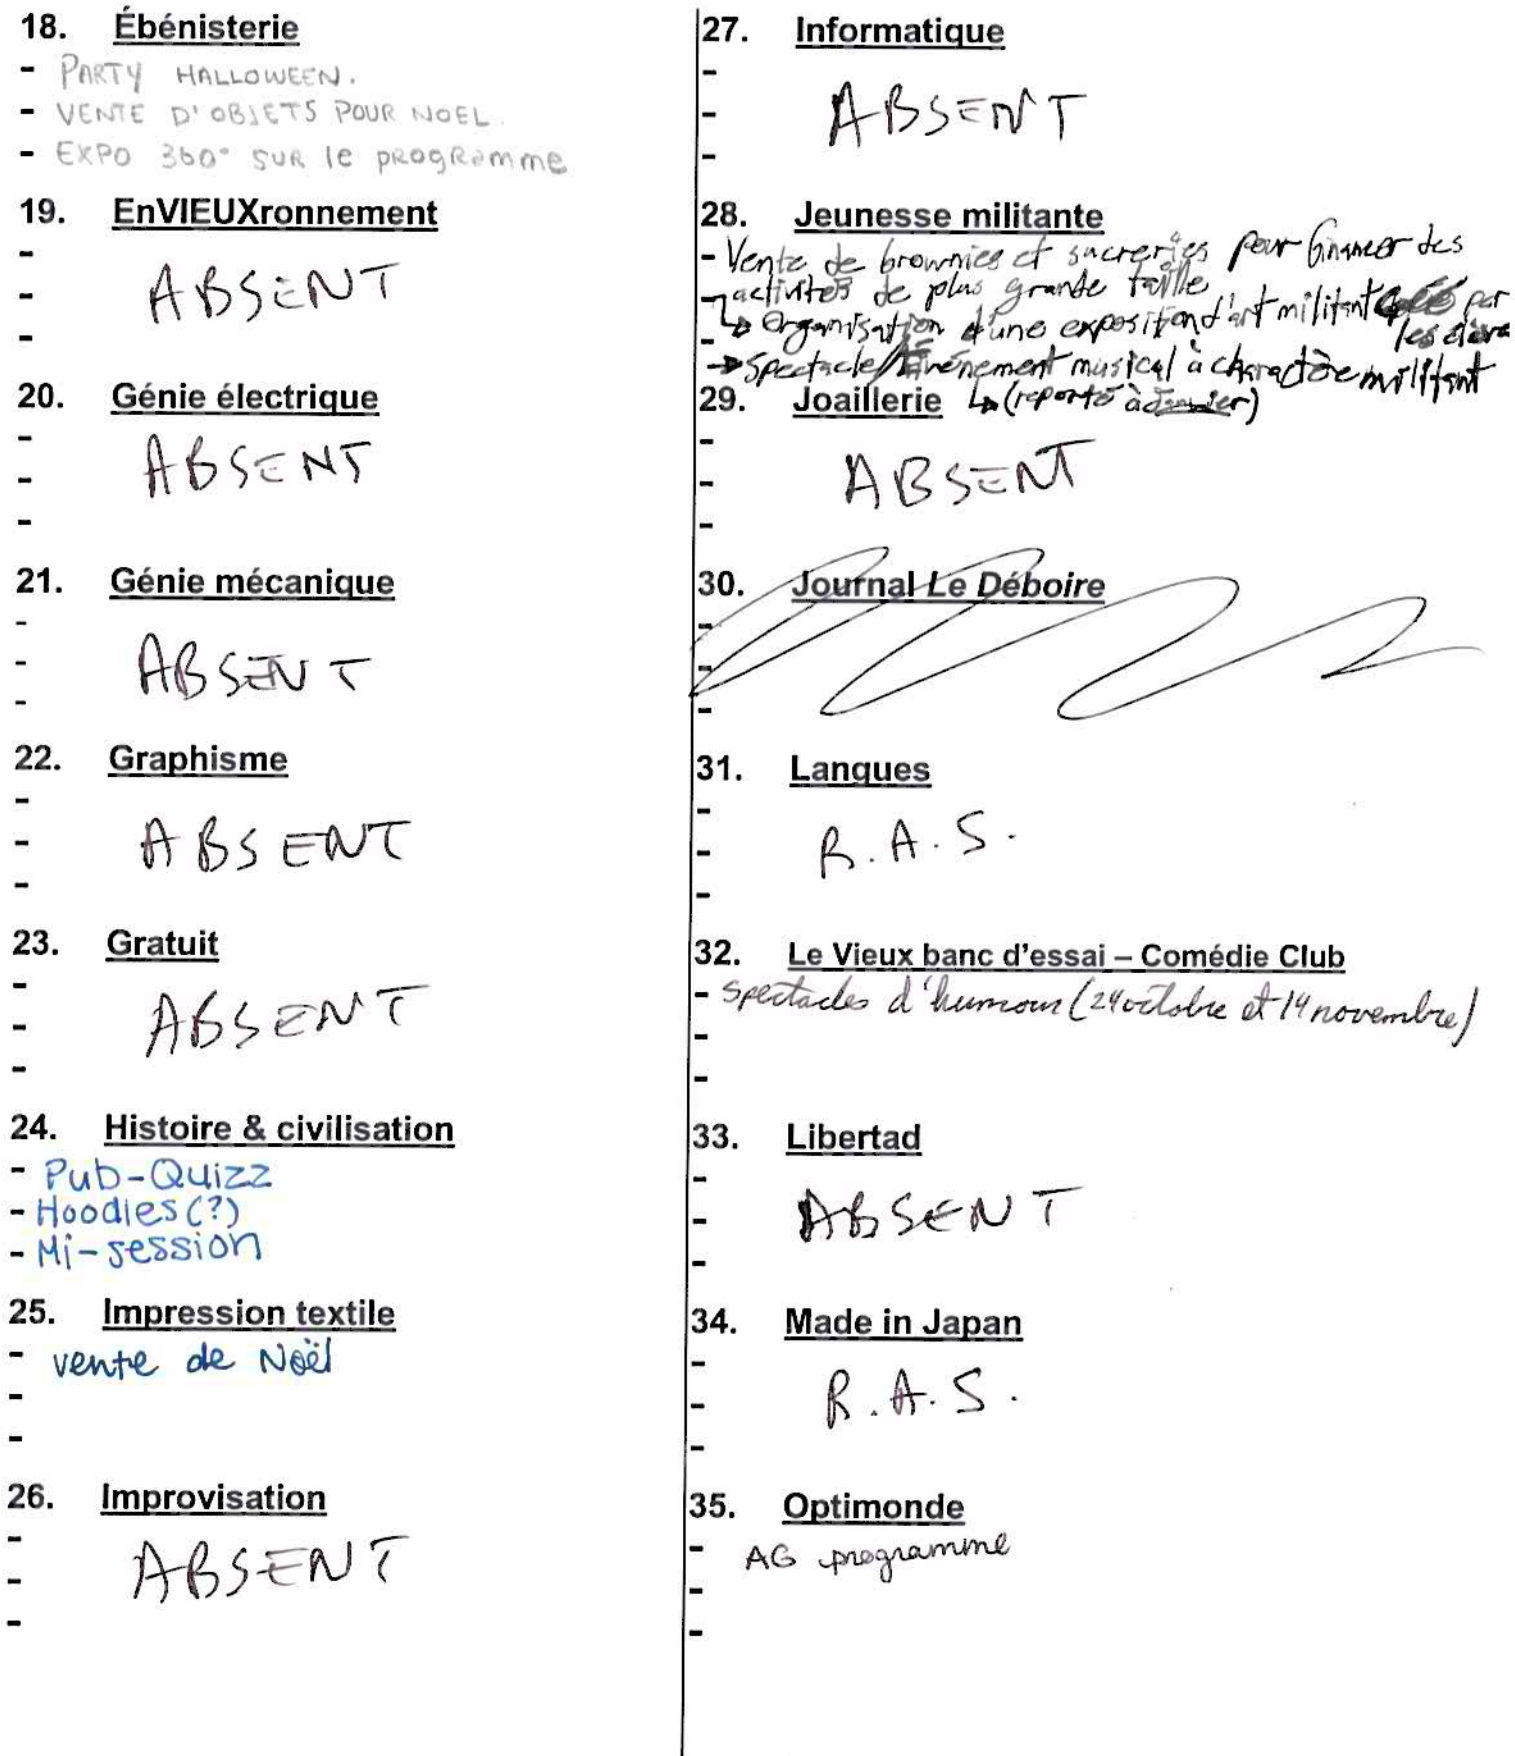 18. Ébénisterie
- PARTY HALLOWEEN.
- VENTE D'OBJETS POUR NOEL.
- EXPO 360° SUR le programme
19. EnVIEUXronnement
-
- ABSENT
-
20. Génie électrique
-
- ABSENT
-
21. Génie mécanique
-
- ABSENT
-
22. Graphisme
-
- ABSENT
-
23. Gratuit
-
- ABSENT
-
24. Histoire & civilisation
- Pub-Quizz
- Hoodies (?)
- Mi-session
25. Impression textile
- vente de Noël
-
-
26. Improvisation
-
- ABSENT
-
27. Informatique
-
- ABSENT
-
28. Jeunesse militante
- Vente de brownies et sucreries pour financer des
- activités de plus grande taille
- ↳ Organisation d'une exposition d'art militant par
les
→ Spectacle/Événement musical à charactère militant
29. Joaillerie ↳ (reporté à
-
- ABSENT
-
30. Journal Le Déboire
-
-
-
31. Langues
-
- R.A.S.
-
32. Le Vieux banc d'essai – Comédie Club
- spectacles d'humour (24 octobre et 14 novembre)
-
-
33. Libertad
-
- ABSENT
-
34. Made in Japan
-
- R.A.S.
-
35. Optimonde
- AG programme
-
-